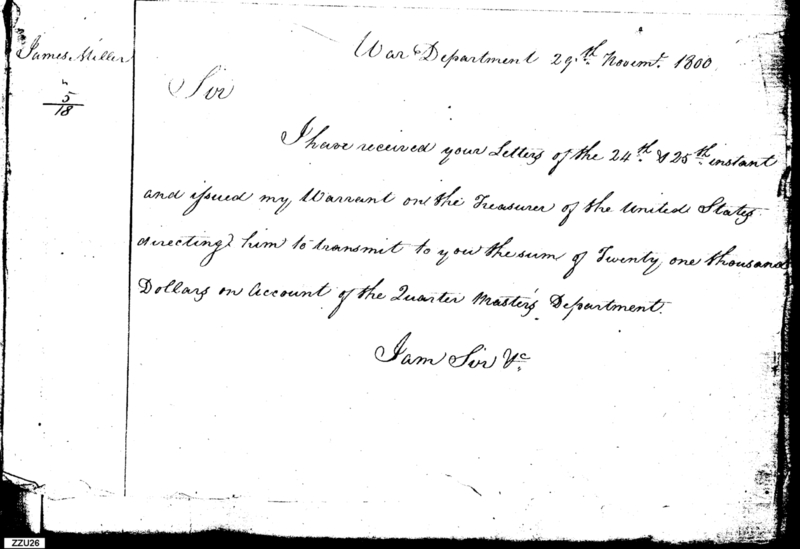 James Miller
"
5
18
War Department 29th. Novemr. 1800
Sir
I have received your Letters of the 24th. & 25th. instant
and issued my Warrant on the Treasurer of the United States
directing him to transmit to you the sum of Twenty one thousand
Dollars on Account of the Quarter Master's Department.
I am Sir &c
ZZU26